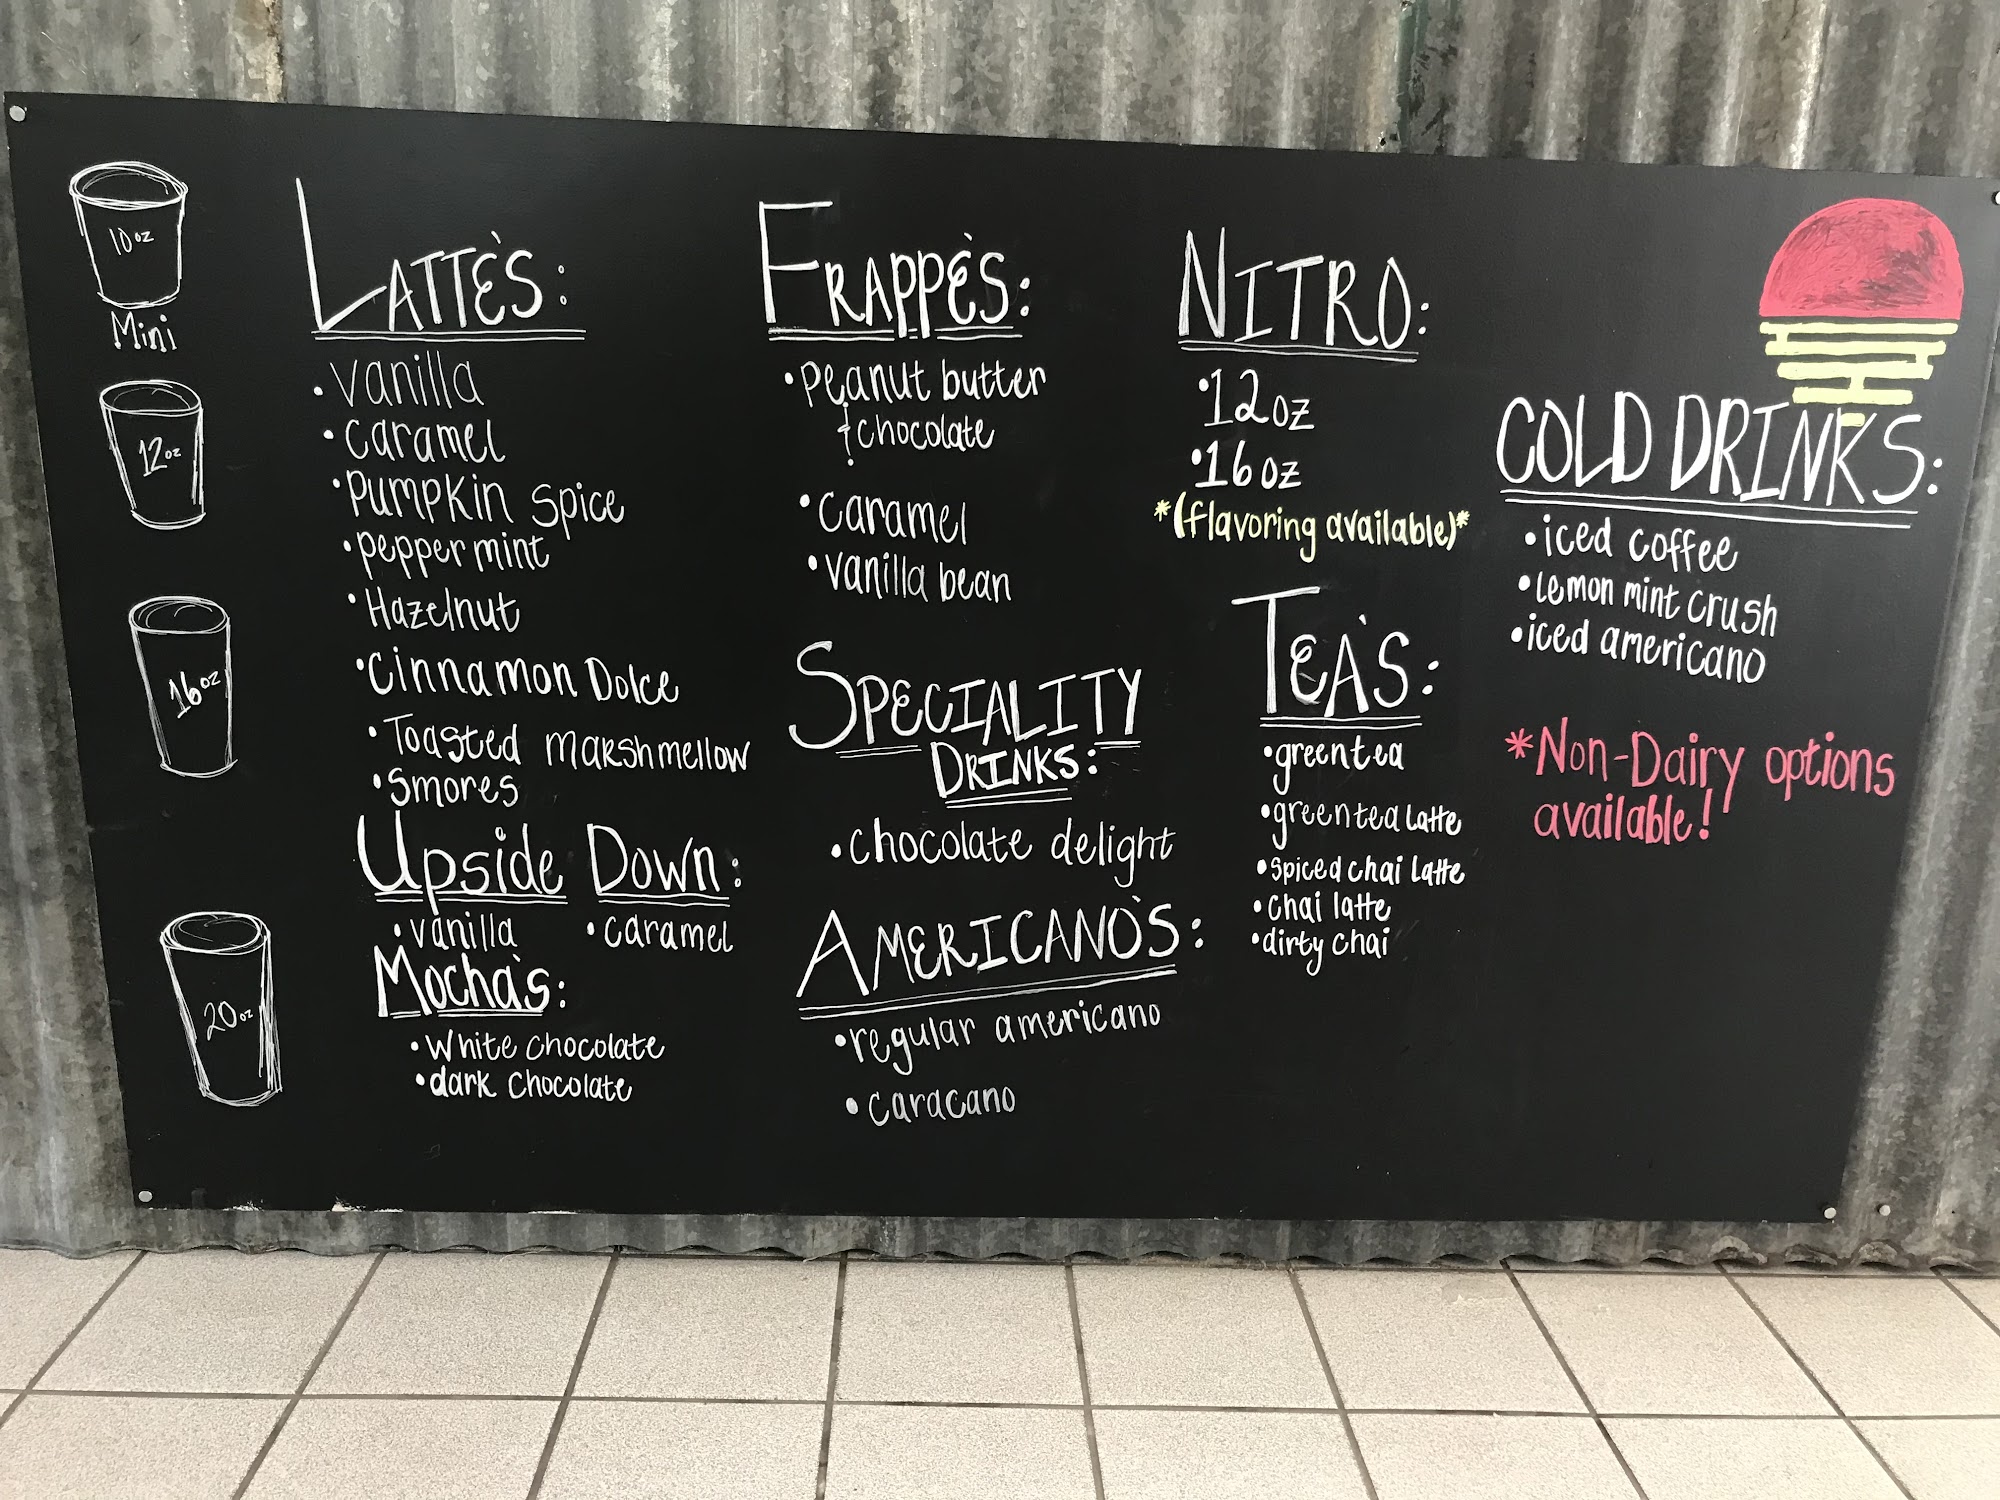 10 oz
Mini
12 oz
16 oz
20 oz
LATTÈS:
• vanilla
• caramel
• Pumpkin Spice
• peppermint
• Hazelnut
• Cinnamon Dolce
• Toasted marshmellow
• Smores
Upside Down:
• vanilla • caramel
Mocha's:
• White chocolate
• dark chocolate
FRAPPÈS:
• peanut butter
& chocolate
• caramel
• vanilla bean
SPECIALITY
DRINKS:
• chocolate delight
AMERICANO'S:
• regular americano
• caracano
NITRO:
• 12 oz
• 16 oz
*(flavoring available)*
TEA'S:
• green tea
• green tea latte
• spiced chai latte
• chai latte
• dirty chai
COLD DRINKS:
• iced coffee
• lemon mint crush
• iced americano
*Non-Dairy options
available!